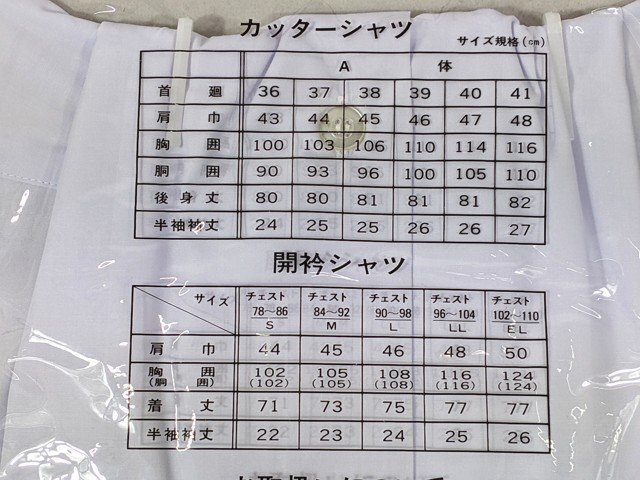 カッターシャツ
サイズ規格(cm)
A 体
首廻 36 37 38 39 40 41
肩巾 43 44 45 46 47 48
胸囲 100 103 106 110 114 116
胴囲 90 93 96 100 105 110
後身丈 80 80 81 81 81 82
半袖袖丈 24 25 25 26 26 27
開衿シャツ
サイズ チェスト78～86 S チェスト84～92 M チェスト90～98 L チェスト96～104 LL チェスト102～110 EL
肩巾 44 45 46 48 50
胸囲(胴囲) 102(102) 105(105) 108(108) 116(116) 124(124)
着丈 71 73 75 77 77
半袖袖丈 22 23 24 25 26
お取扱いについて